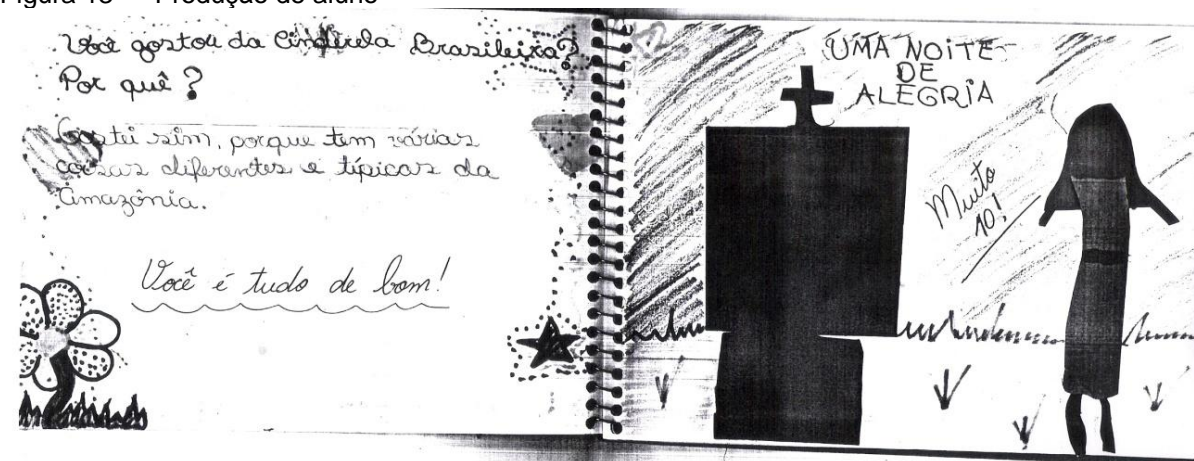 Figura 48 – Produção do aluno
Você gostou da Cinderela Brasileira?
Por quê?
Gostei sim, porque tem várias
coisas diferentes e típicas da
Amazônia.
Você é tudo de bom!
UMA NOITE
DE
ALEGRIA
Muito
10!